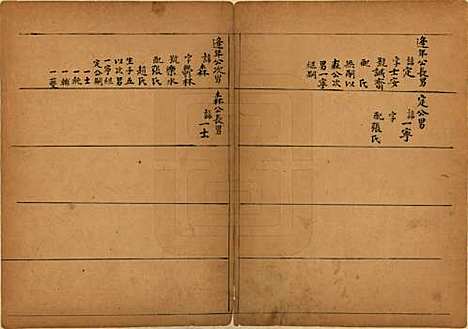 逢年公長男
諱定
字士安
號誠齋
配氏
無嗣以
森公次
男一寧
繼嗣
定公男
諱一寧
字
配張氏
逢年公次男
諱森
字喬林
號樂水
配張氏
趙氏
生子五
以次男
一寧繼
定公嗣
一士
一乾
一楠
一夔
森公長男
諱一士